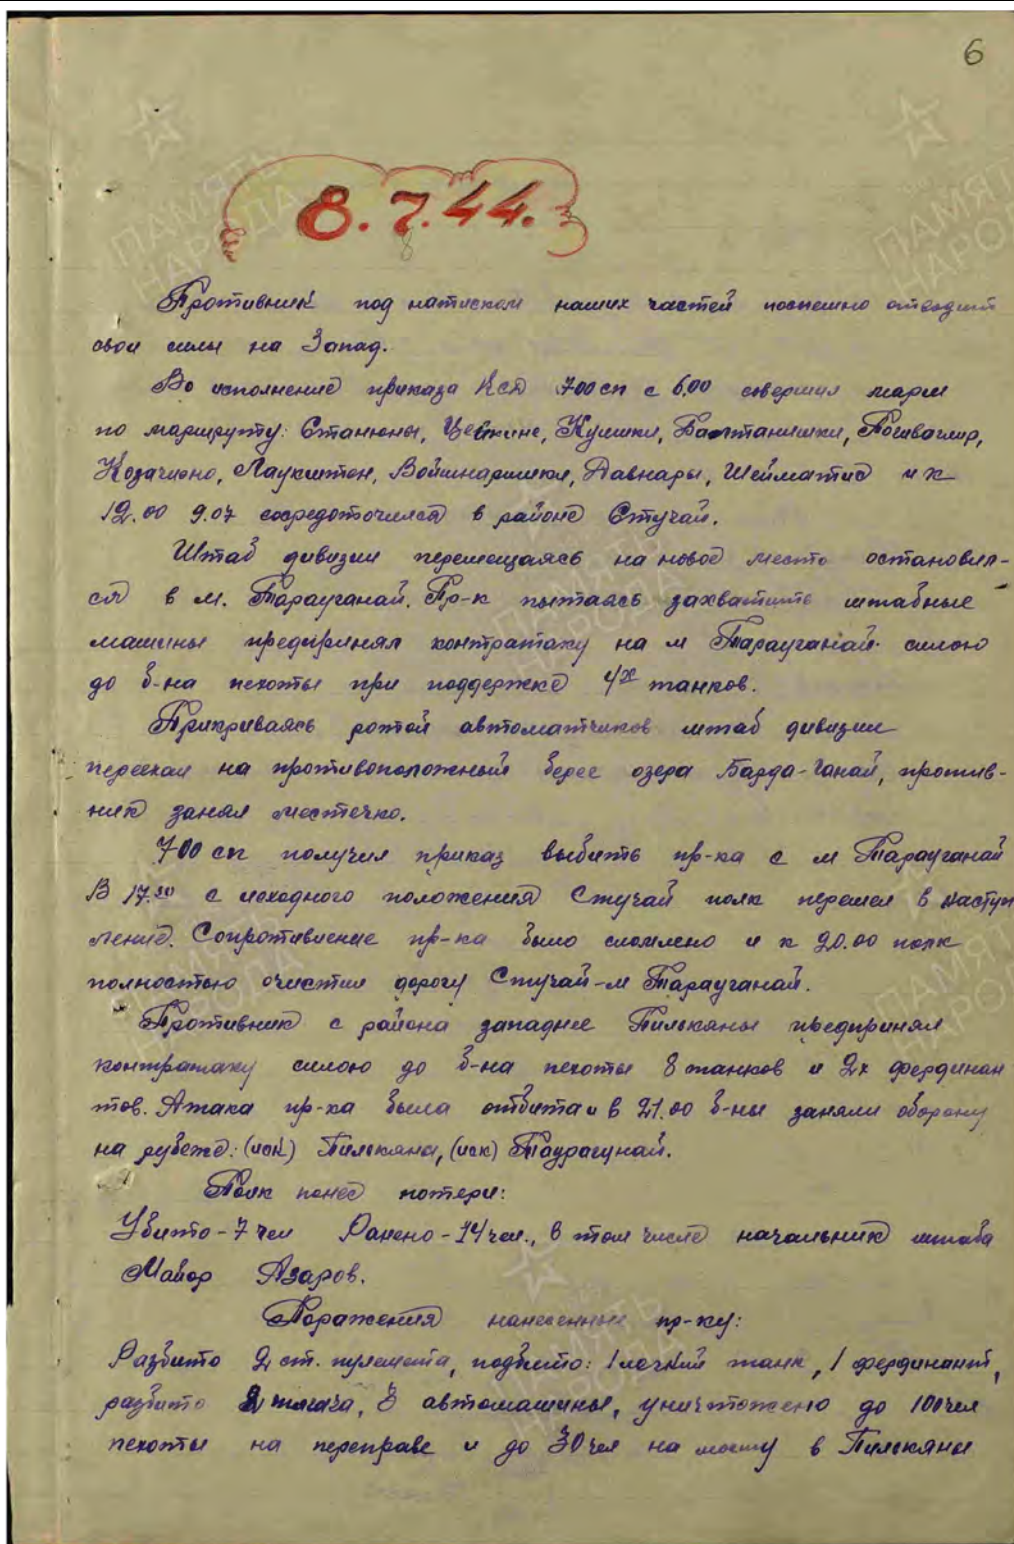 6
8.7.44.
8
Противник под натиском наших частей поспешно отводит
свои силы на Запад.
Во исполнение приказа Ксд 700 сп с 6.00 совершил марш
по маршруту: Станюны, Цейкине, Куишки, Балтанишки,
Козачизно, Лаукштон, Войшнаришки, Давнары, Шейматис и к
12.00 9.07 сосредоточился в районе Стучай.
Штаб дивизии перемещаясь на новое место остановил-
ся в м. Тарауганай. Пр-к пытаясь захватить штабные
машины предпринял контратаку на м Тарауганай силою
до б-на пехоты при поддержке 4х танков.
Прикриваясь ротой автоматчиков штаб дивизии
переехал на противоположный берег озера Барда-Ганай, против-
ник занял местечко.
700 сп получил приказ выбить пр-ка с м Тарауганай
В 17.30 с исходного положения Стучай полк перешел в наступ
ление. Сопротивление пр-ка было сломлено и к 20.00 полк
полностью очистил дорогу Стучай-м Тарауганай.
Противник с района западнее Пилькяны предпринял
контратаку силою до б-на пехоты 8 танков и 2х фердинан
тов. Атака пр-ка была отбита и в 21.00 б-ны заняли оборону
на рубеже: (иск) Пилькяны, (иск) Таурагунай.
Полк понес потери:
Убито-7 чел Ранено-14 чел., в том числе начальник штаба
Майор Азаров.
Поражения нанесенные пр-ку:
Разбито 2 ст. пулемета, подбито: 1 легкий танк, 1 фердинант,
разбито 2 тягача, 3 автомашины, уничтожено до 100 чел
пехоты на переправе и до 30 чел на мосту в Пилькяны
ПАМЯТЬ
НАРОДА